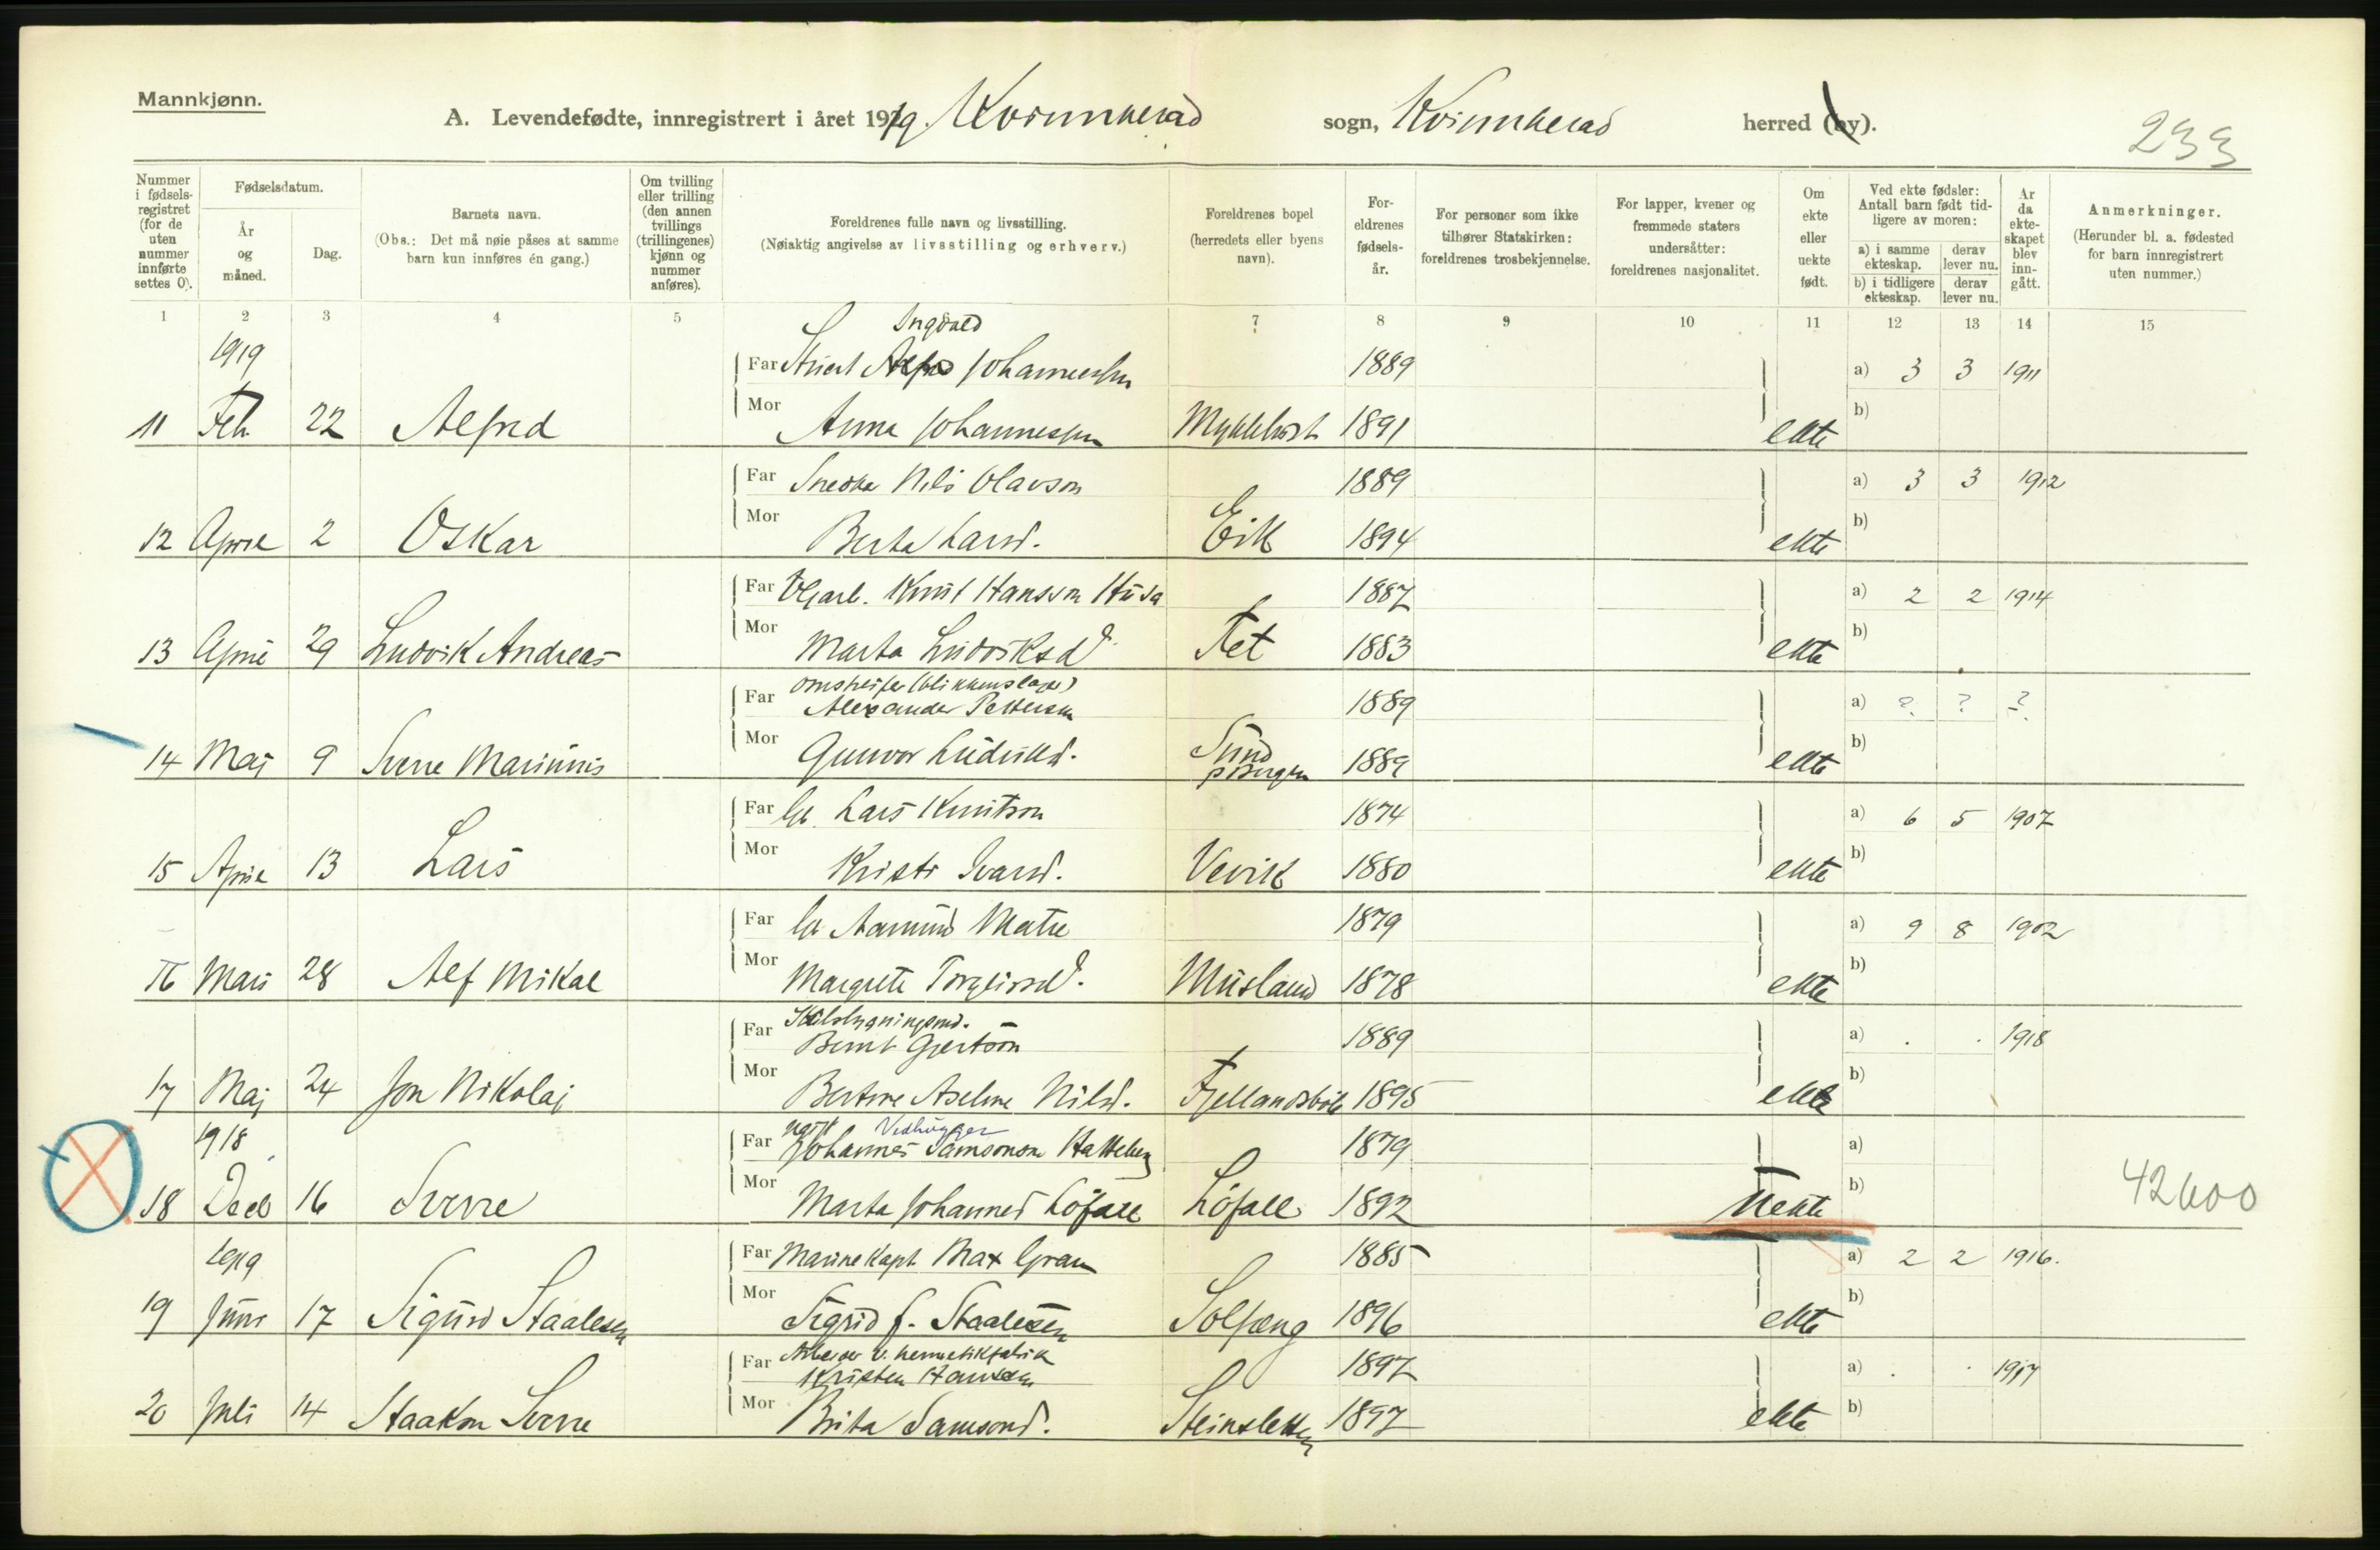 Mannkjønn.
A. Levendefødte, innregistrert i året 1919. Kvinnherad sogn, Kvinnherad herred (by).
233
Nummer i fødselsregistret (for de uten nummer innførte settes 0).
Fødselsdatum.
År og måned.
Dag.
Barnets navn.
(Obs.: Det må nøie påses at samme barn kun innføres én gang.)
Om tvilling eller trilling (den annen tvillings (trillingenes) kjønn og nummer anføres).
Foreldrenes fulle navn og livsstilling.
(Nøiaktig angivelse av livsstilling og erhverv.)
Foreldrenes bopel (herredets eller byens navn).
Foreldrenes fødselsår.
For personer som ikke tilhører Statskirken: foreldrenes trosbekjennelse.
For lapper, kvener og fremmede staters undersåtter: foreldrenes nasjonalitet.
Om ekte eller uekte født.
Ved ekte fødsler: Antall barn født tidligere av moren:
a) i samme ekteskap. derav lever nu.
b) i tidligere ekteskap. derav lever nu.
År da ekteskapet blev inngått.
Anmerkninger.
(Herunder bl. a. fødested for barn innregistrert uten nummer.)
1 2 3 4 5 7 8 9 10 11 12 13 14 15
1919 Ingvald
Far Johannessen 1889 a) 3 3 1911
11 Feb. 22 Alfred Mor Anna Johannessen 1891 ekte b)
Far Nils Olavson 1889 a) 3 3 1912
12 April 2 Oskar Mor Berta Larsd. Eik 1894 ekte b)
Far Knut Hansson Husa 1887 a) 2 2 1914
13 April 29 Ludvik Andreas Mor Marta Ludviksd. Tet 1883 ekte b)
(blikkenslager)
Far Alexander Pettersen 1889 a) ? ? ?
14 Maj 9 Sverre Marinius Mor Gunvor Sund p. Bergen 1889 ekte b)
Far Lars Knutson 1874 a) 6 5 1907
15 April 13 Lars Mor Kristi Ivarsd. Vevik 1880 ekte b)
Far Aamund Matre 1879 a) 9 8 1902
16 Mars 28 Alf Mikal Mor Margrete Musland 1878 ekte b)
Far Bernt Gjertson 1889 a) . . 1918
17 Maj 24 Jon Nikolaj Mor Bertine Aseline Nilsd. 1895 ekte b)
1918 Vedhugger
Far Johannes Samsonson 1879 a)
18 Decb 16 Sverre Mor Marta Johannesd Löfall Löfall 1892 Uekte b) 42600
1919 Far Marinekapt. Max Gram 1885 a) 2 2 1916.
19 Juni 17 Sigurd Staalesen Mor Sigrid f. Staalesen Solfæng 1896 ekte b)
Arbeider v. hermetikfabrik
Far Kristen Hansen 1897 a) . . 1917
20 Juli 14 Haakon Sverre Mor Brita Samsond. Steinsletten 1897 ekte b)